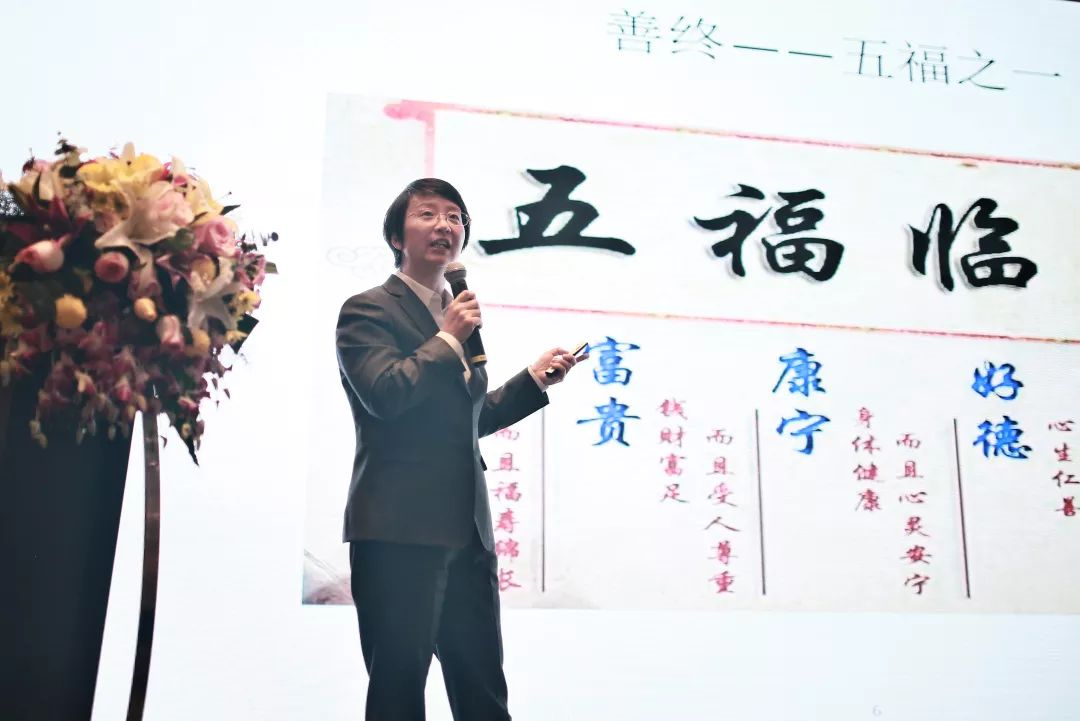 善终——五福之一
五福临
而且福寿绵长
富贵
钱财富足
而且受人尊重
康宁
身体健康
而且心灵安宁
好德
心生仁善
6